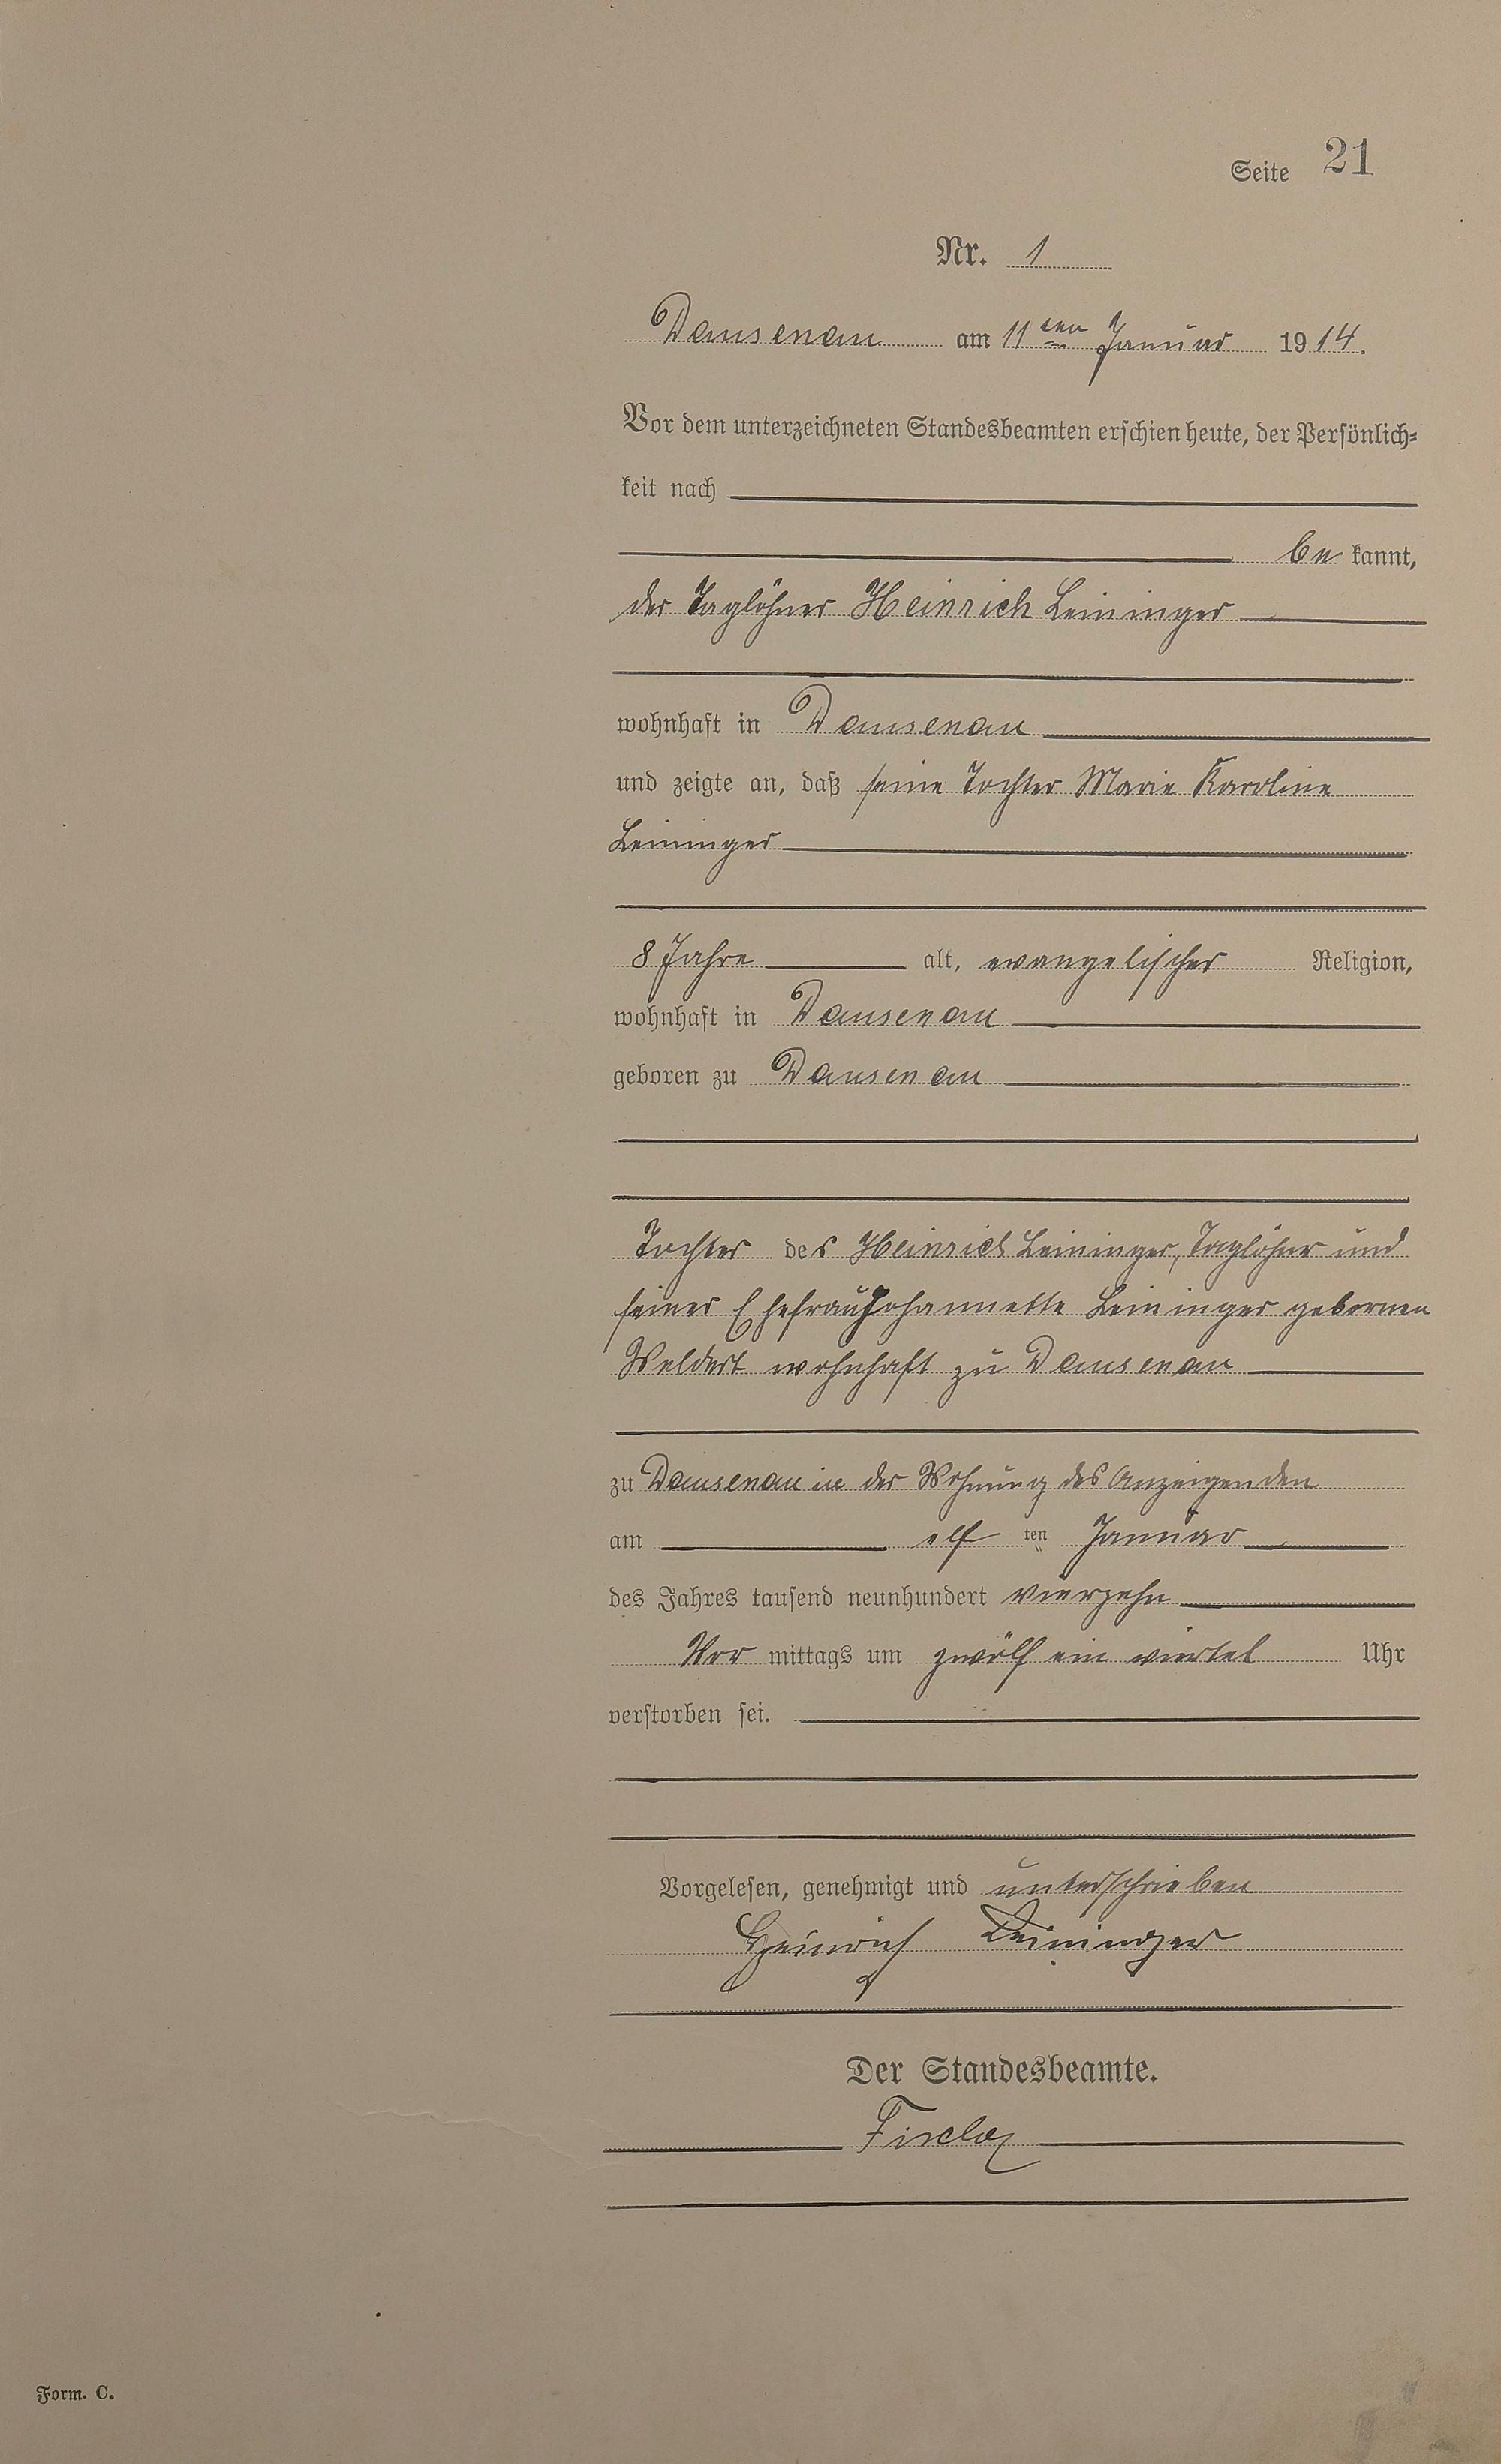 Seite 21
Nr. 1
Dausenau am 11ten Januar 1914.
Vor dem unterzeichneten Standesbeamten erschien heute, der Persönlich-
keit nach
be kannt,
der Taglöhner Heinrich Leininger
wohnhaft in Dausenau
und zeigte an, daß seine Tochter Marie Karoline
Leininger
8 Jahre alt, evangelischer Religion,
wohnhaft in Dausenau
geboren zu Dausenau
Tochter des Heinrich Leininger, Taglöhner und
seiner Ehefrau Johannette Leininger gebornen
Weldert wohnhaft zu Dausenau
zu Dausenau in der Wohnung des Anzeigenden
am elf ten Januar
des Jahres tausend neunhundert vierzehn
Vor mittags um zwölf ein viertel Uhr
verstorben sei.
Vorgelesen, genehmigt und unterschrieben
Heinrich Leininger
Der Standesbeamte.
Form. C.